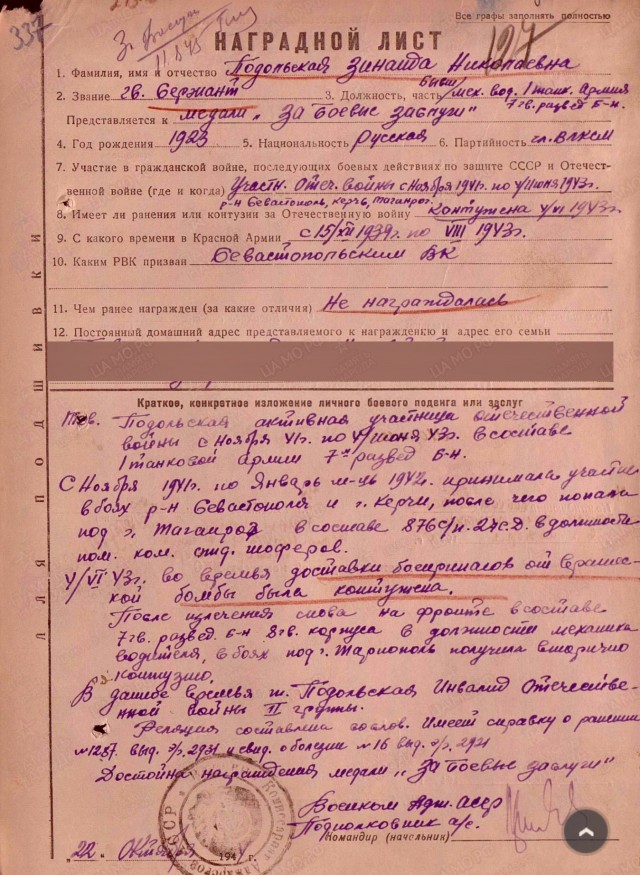 337
Все графы заполнять полностью
НАГРАДНОЙ ЛИСТ
1. Фамилия, имя и отчество Подольская Зинаида Николаевна
бывш.
2. Звание гв. Сержант 3. Должность, часть мех. вод. 1 танк. Армия
7 гв. развед Б-н.
Представляется к медали „За Боевые заслуги"
4. Год рождения 1923 5. Национальность Русская 6. Партийность чл. ВЛКСМ
7. Участие в гражданской войне, последующих боевых действиях по защите СССР и Отечест-
венной войне (где и когда) Участн. Отеч. войны с Ноября 1941г. по Июня 1943г.
р-н Севастополь, Керчь, Таганрог.
8. Имеет ли ранения или контузии за Отечественную войну контужена 4/VI 1943г.
9. С какого времени в Красной Армии с 15/XII 1939г. по VIII 1943г.
10. Каким РВК призван Севастопольским ВК
11. Чем ранее награжден (за какие отличия) Не награждалась
12. Постоянный домашний адрес представляемого к награждению и адрес его семьи
ДЛЯ ПОДШИВКИ
Краткое, конкретное изложение личного боевого подвига или заслуг
Тов. Подольская активная участница отечественной
войны с Ноября 41г. по Июня 43г. в составе
1 танковой армии 7й развед Б-н.
С Ноября 1941г. по Январь м-ць 1942г. принимала участие
в боях р-н Севастополя и г. Керчи, после чего попала
под г. Таганрог в составе 876 с/п. 27 с.д. в должности
пом. ком. шоферов.
4/VI 43г. во времья доставки боеприпасов от вражес-
кой бомбы была контужена.
После излечения снова на фронте в составе
7 гв. развед. Б-н 8 гв. корпуса в должности механика
водителя, в боях под г. Мариополь получила вторично
контузию.
В даное времья т. Подольская Инвалид Отечестве-
нной войны II группы.
Реляция составлена со слов. Имеет справку о ранении
№1287 выд. э/г. 2931 и свид. о болезни №16 выд. э/г. 2931
Достойна награждения медали „За Боевые заслуги"
Военком Адж. АССР
Подполковник а/с.
Командир (начальник)
„22" Октября 194 г.
ЦАМО РФ